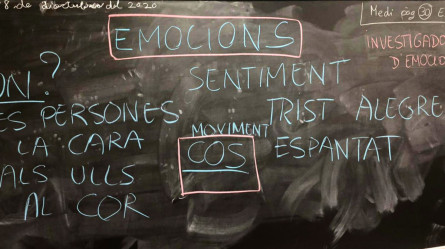 8 de del 2020
Medi pàg 30 E
EMOCIONS
INVESTIGADO
D'EMOCIO
ON?
SENTIMENT
ES PERSONES
TRIST ALEGRE
MOVIMENT
LA CARA
COS ESPANTAT
ALS ULLS
AL COR